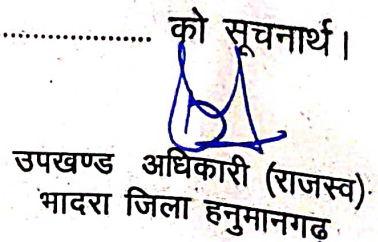 ..................... को सूचनार्थ।
उपखण्ड अधिकारी (राजस्व)
भादरा जिला हनुमानगढ़